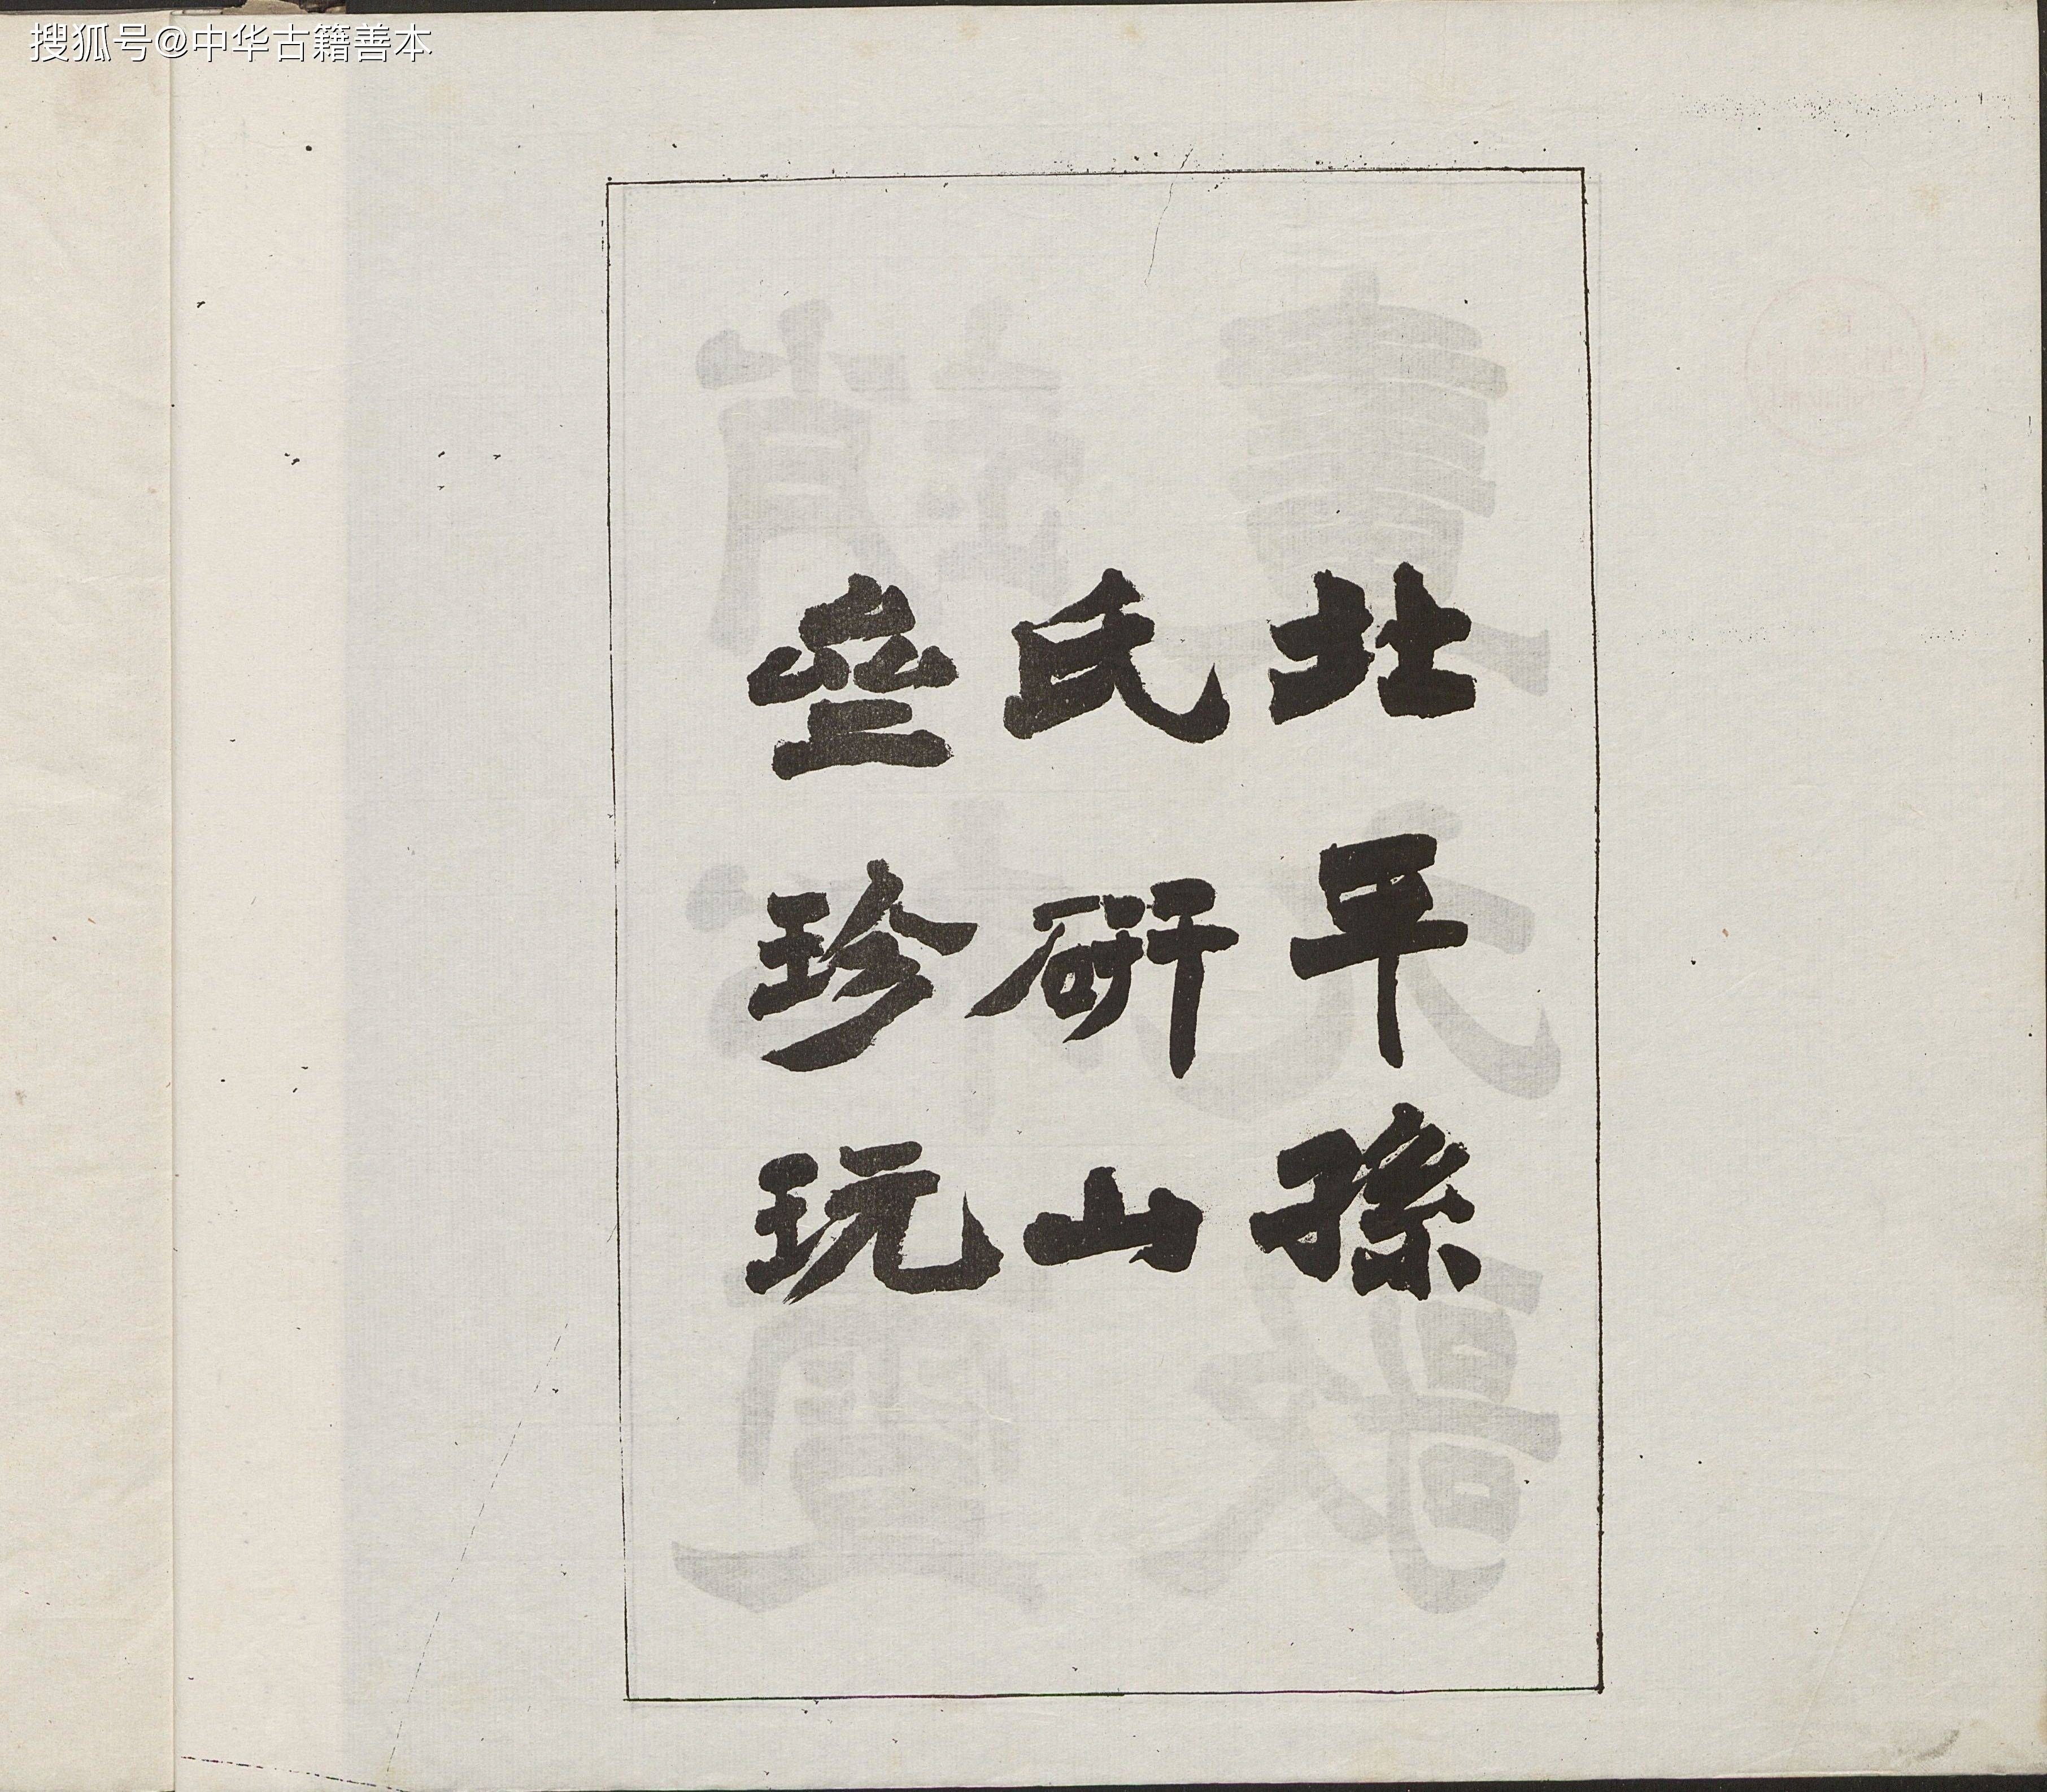 搜狐号@中华古籍善本
北平孫
氏研山
垒珍玩